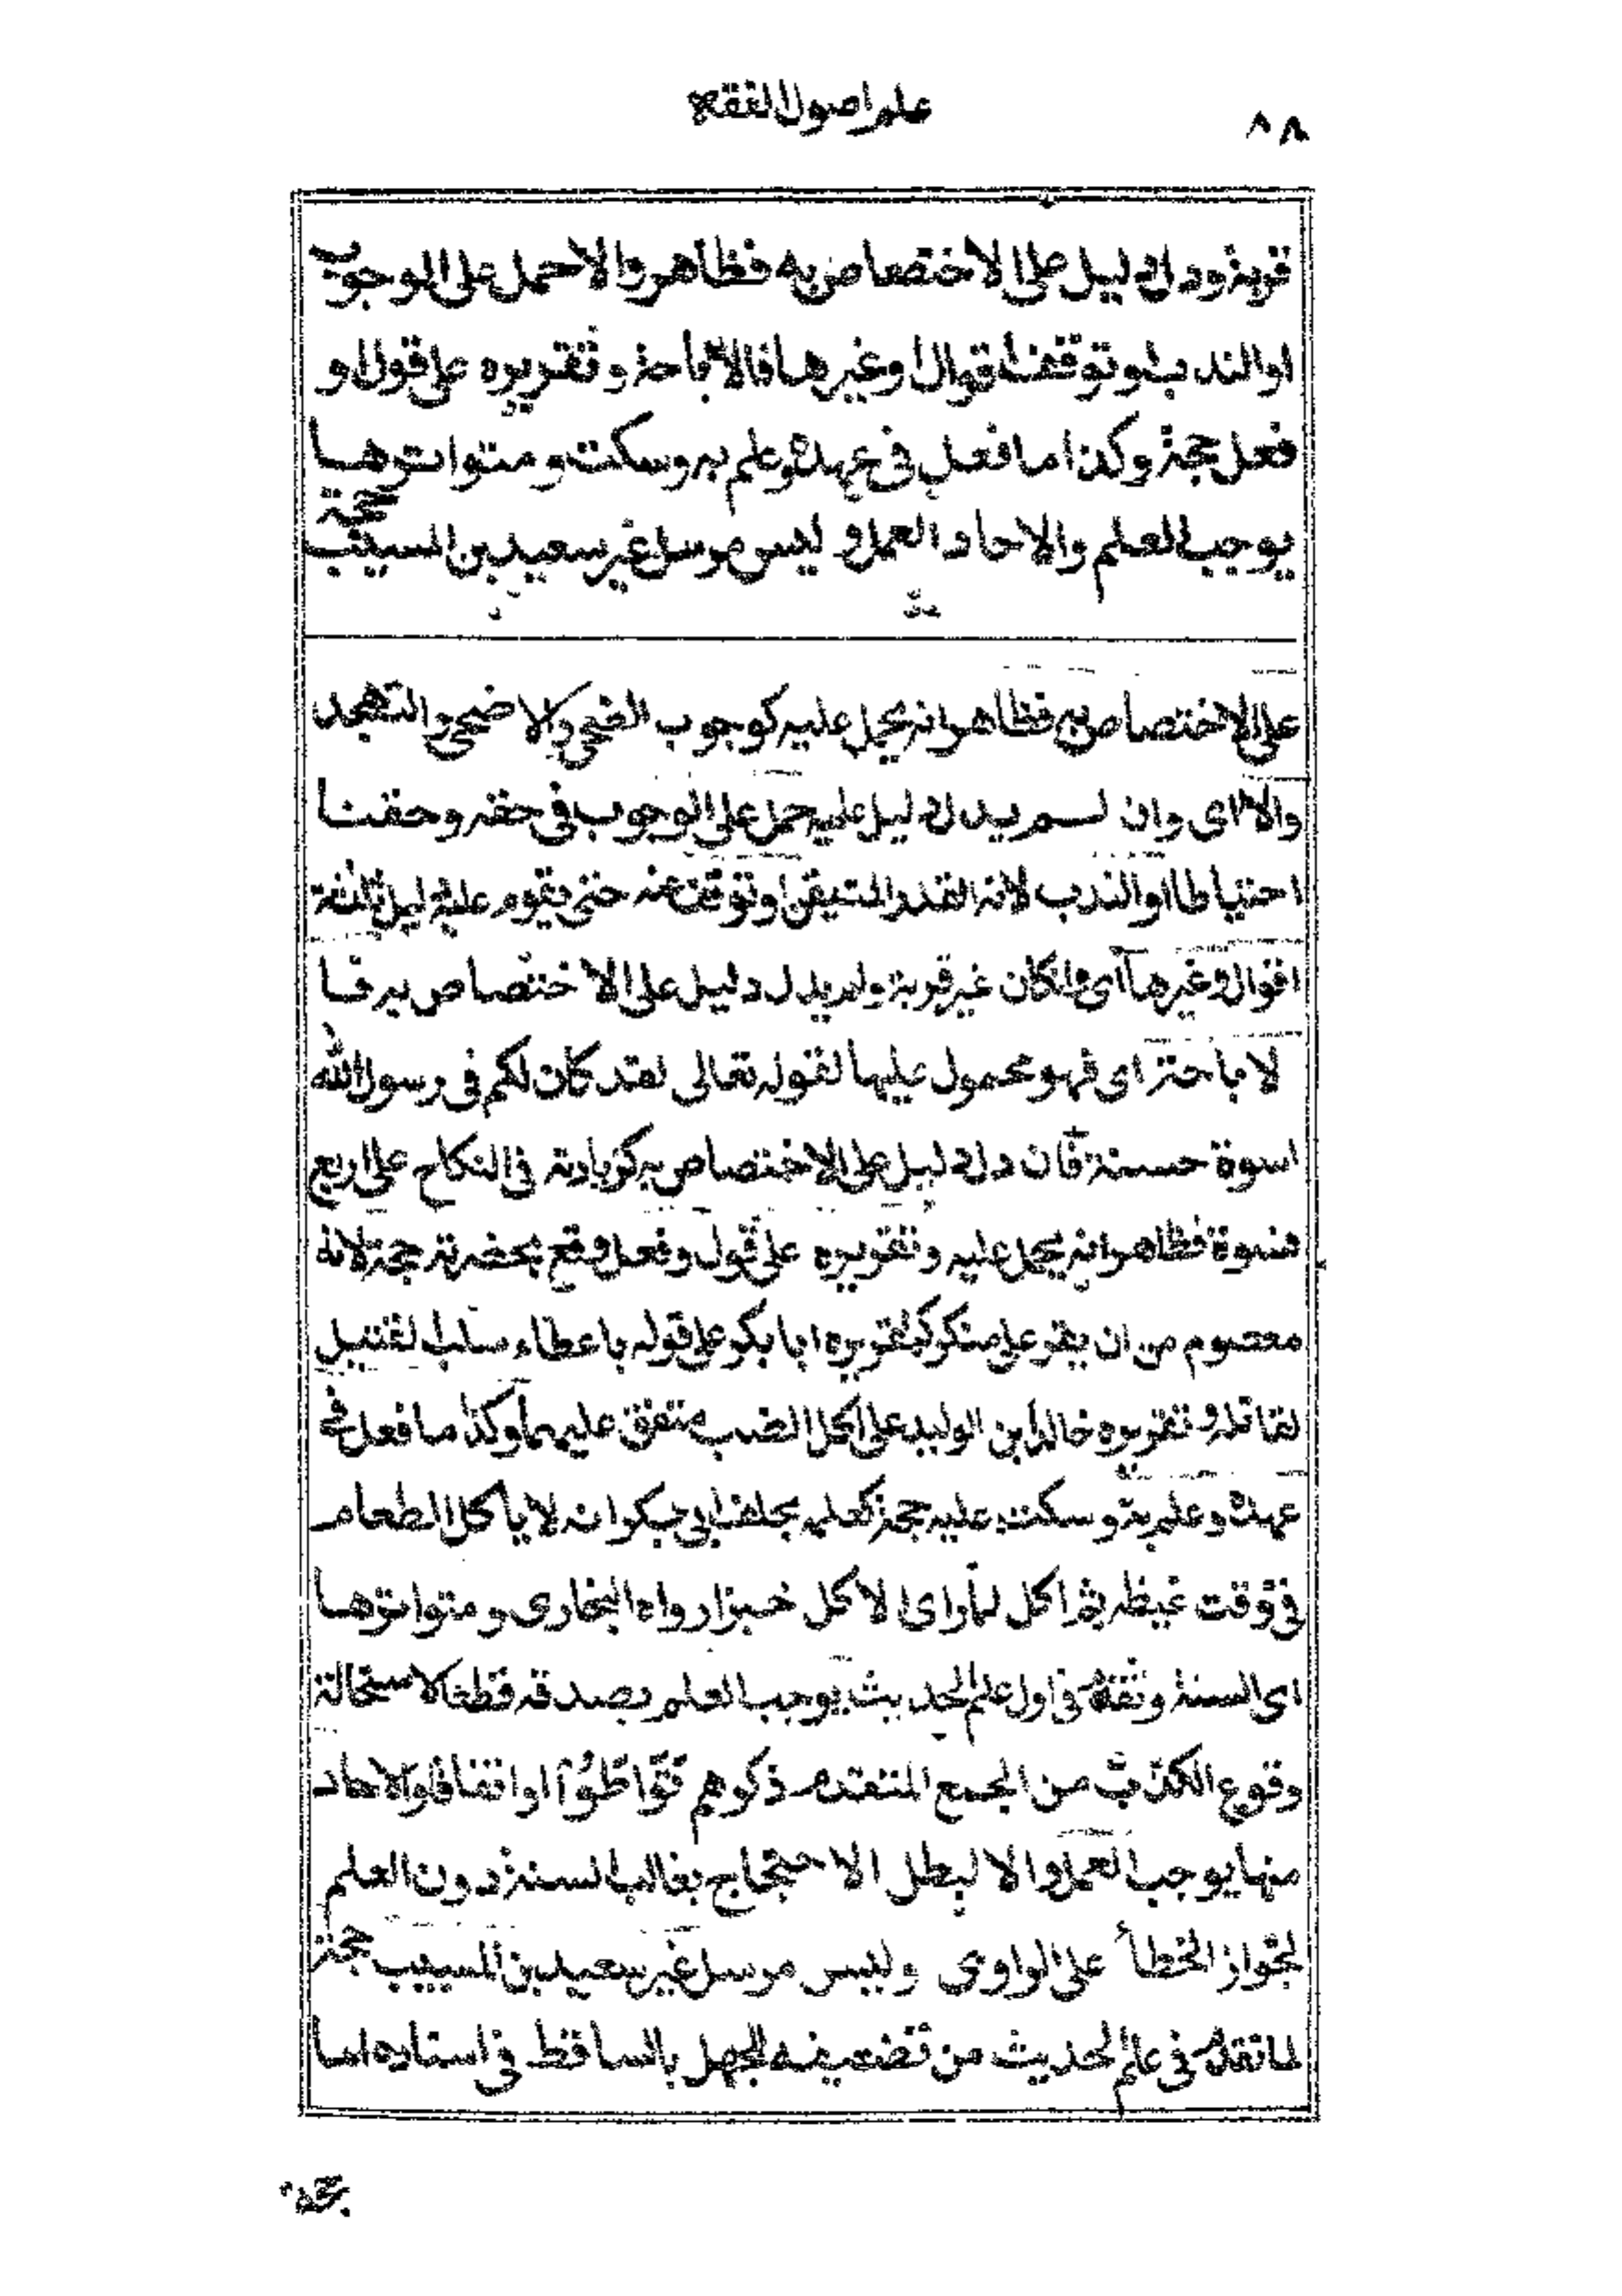 علم اصول الفقه
٨٨
قربة ودل دليل على الاختصاص به فظاهر والا حمل على الوجوب
او الندب او توقفنا قوال او غيرها فالاباحة وتقريره على قول او
فعل حجة وكذا ما فعل فى عهده وعلم به وسكت ومتواترها
يوجب العلم والاحاد العمل و ليس مرسل غير سعيد بن المسيب حجة
على الاختصاص به فظاهر انه يحمل عليه كوجوب الضحى والاضحى والتهجد
والا اى وان لم يدل دليل عليه حمل على الوجوب فى حقه وحقنا
احتياطا او الندب لانه القدر المتيقن او توقف عنه حتى يقوم عليه دليل ثلثة
اقوال وغيرها اى وان كان غير قربة ولم يدل دليل على الاختصاص به فا
لاباحة اى فهو محمول عليها لقوله تعالى لقد كان لكم فى رسول الله
اسوة حسنة فان دل دليل على الاختصاص به كزيادته فى النكاح على اربع
نسوة فظاهر انه يحمل عليه وتقريره على قول وفعل وقع بحضرته حجة لانه
معصوم من ان يقر على منكر كتقريره ابا بكر على قوله باعطاء سلب القتيل
لقاتله وتقريره خالد ابن الوليد على اكل الضب متفق عليهما وكذا ما فعل فى
عهده وعلم به وسكت عليه حجة كعلمه بحلف ابى بكر انه لا يأكل الطعام
فى وقت غيظه ثم اكل لما راى الاكل خيرا رواه البخارى ومتواترها
اى السنة وتقدم فى اول علم الحديث يوجب العلم بصدقه قطعا لاستحالة
وقوع الكذب من الجمع المتقدم ذكرهم تواطؤا او اتفاقا والاحاد
منها يوجب العمل والا لبطل الاحتجاج بغالب السنة دون العلم
لجواز الخطأ على الراوى وليس مرسل غير سعيد بن المسيب حجة
لما تقدم فى علم الحديث من تضعيفه للجهل بالساقط فى اسناده اما